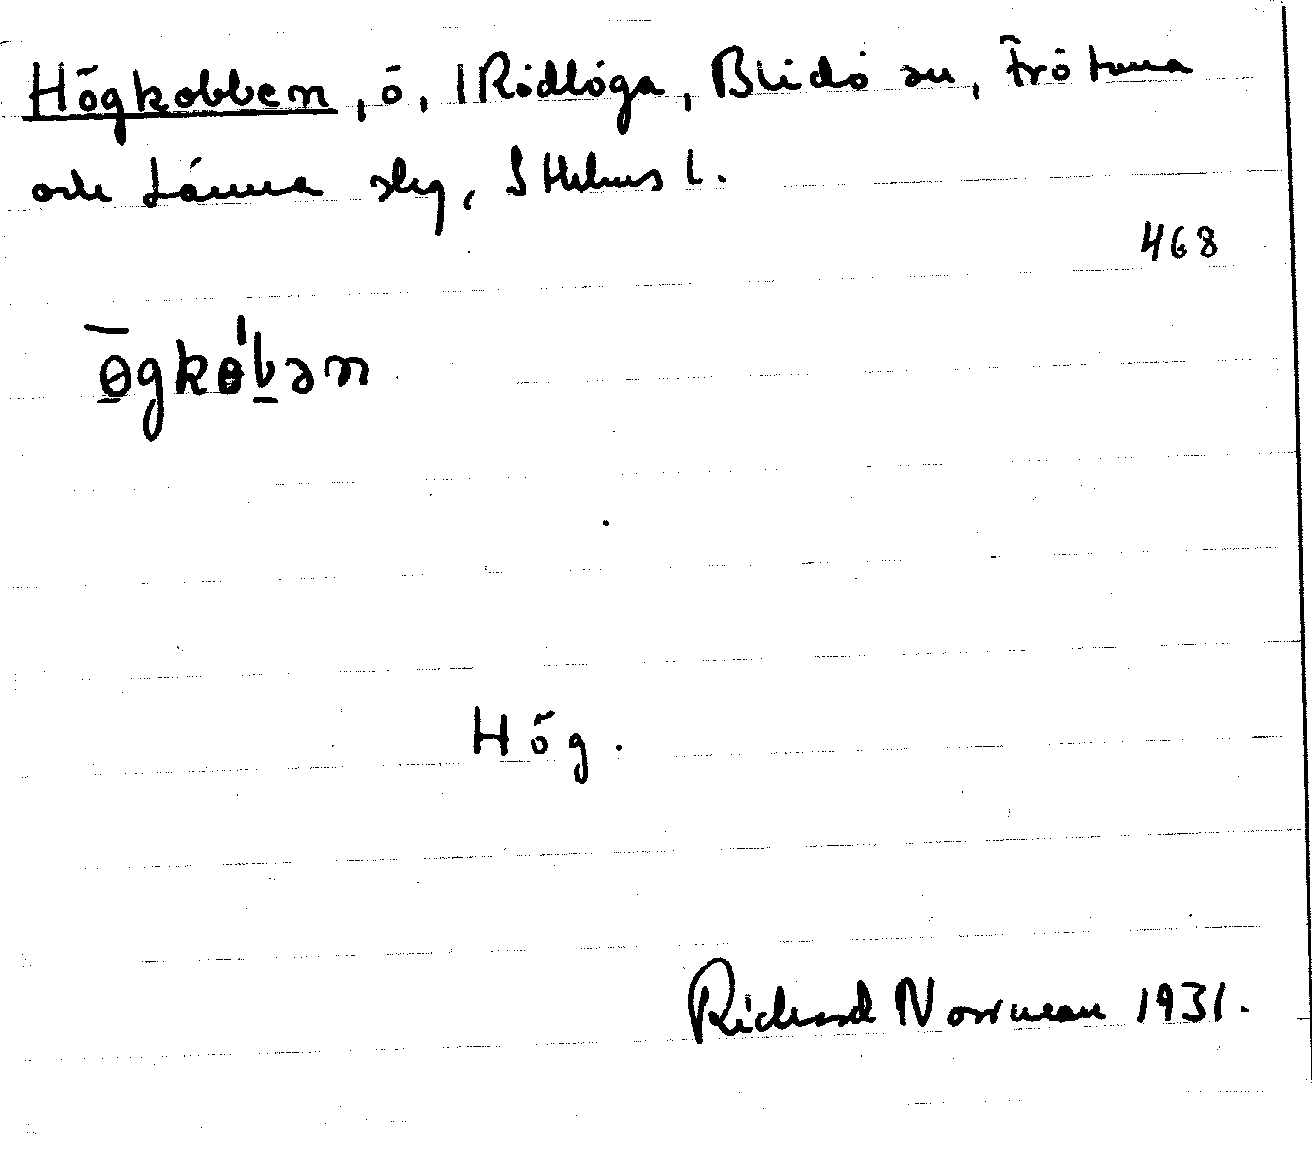 Högkobben, ö, i Rödlöga, Blidö sn, Frötuna
och Länna slg, Sthlms l.
468
ɵgkɵ'bən
Hög.
Richard Norrman 1931.